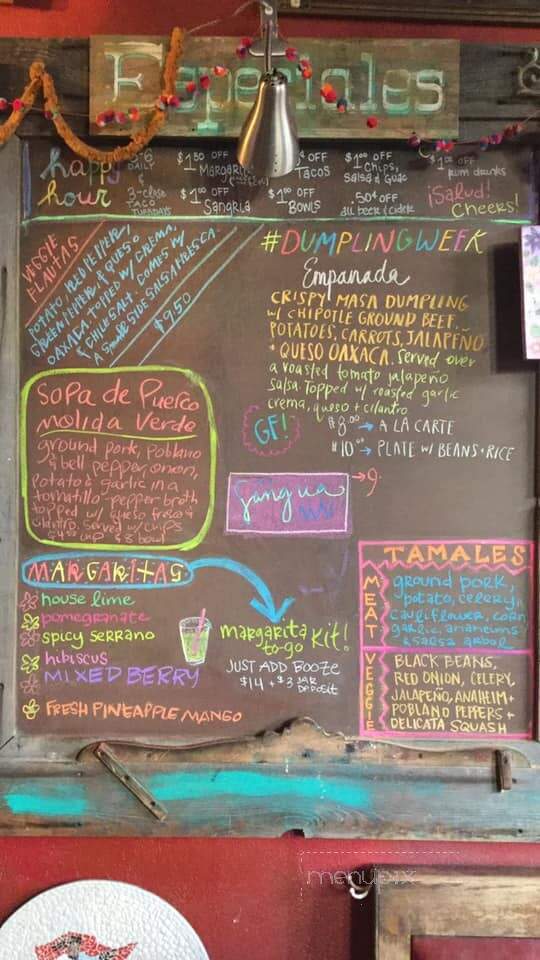 Especiales
happy hour
3-6 DAILY
3-close TACO TUESDAYS
$1.50 OFF Margarita
$1.00 OFF Sangria
OFF Tacos
$1.00 OFF BOWLS
$1.00 OFF Chips, Salsa & Guac
.50¢ OFF all beer & cider
$1.00 OFF rum drinks
¡Salud! Cheers!
VEGGIE FLAUTAS
POTATO, RED PEPPER,
GREEN PEPPER, & QUESO
OAXACA TOPPED W/ CREMA,
& CHILE SALT. COMES W/
A SIDE SALSA FRESCA.
$9.50
#DUMPLINGWEEK
Empanada
CRISPY MASA DUMPLING
W/ CHIPOTLE GROUND BEEF,
POTATOES, CARROTS, JALAPEÑO
+ QUESO OAXACA. Served over
a roasted tomato jalapeño
salsa. Topped w/ roasted garlic
crema, queso + cilantro
GF!
$8.00 → A LA CARTE
$10.00 → PLATE W/ BEANS + RICE
Sopa de Puerco
Molida Verde
ground pork, poblano
& bell pepper, onion,
potato & garlic in a
tomatillo-pepper broth
topped w/ queso fresco &
cilantro. Served w/ chips
cup $8 bowl
Sangria
→ 9.
MARGARITAS
house lime
pomegranate
spicy serrano
hibiscus
MIXED BERRY
FRESH PINEAPPLE MANGO
margarita to-go Kit!
JUST ADD BOOZE
$14 + $3 JAR DEPOSIT
TAMALES
MEAT
ground pork,
potato, celery,
cauliflower, corn,
garlic, anaheims
& salsa arbol
VEGGIE
BLACK BEANS,
RED ONION, CELERY,
JALAPEÑO, ANAHEIM +
POBLANO PEPPERS +
DELICATA SQUASH
menupix